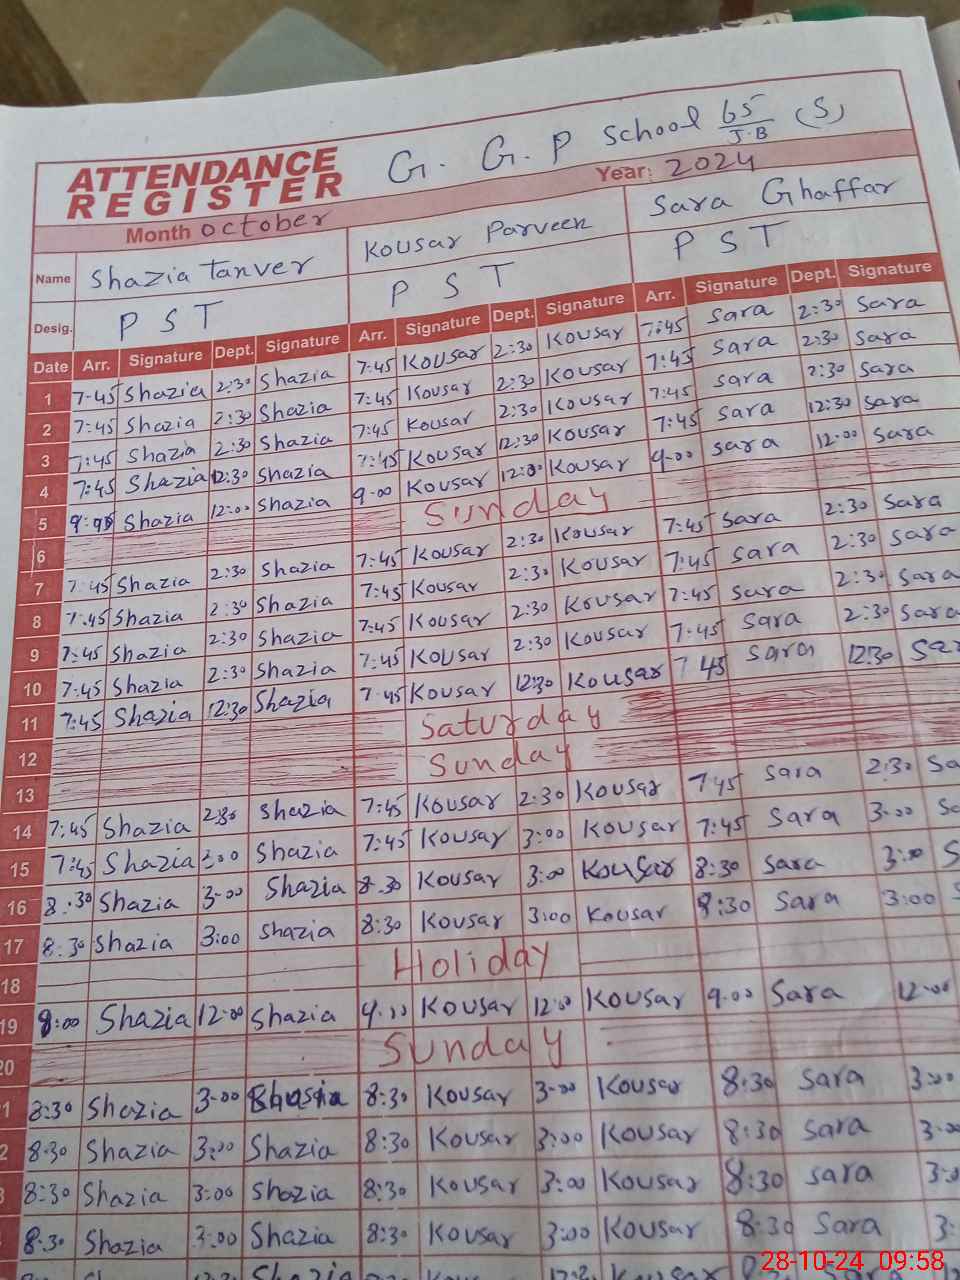 G. G. P School 65/J.B (S)
ATTENDANCE REGISTER
Month October Year: 2024
Name Shazia Tanver Kousar Parveen Sara Ghaffar
Desig. P S T P S T P S T
Date Arr. Signature Dept. Signature Arr. Signature Dept. Signature Arr. Signature Dept. Signature
1 7-45 Shazia 2:30 Shazia 7:45 Kousar 2:30 Kousar 7:45 Sara 2:30 Sara
2 7:45 Shazia 2:30 Shazia 7:45 Kousar 2:30 Kousar 7:45 Sara 2:30 Sara
3 7:45 Shazia 2:30 Shazia 7:45 Kousar 2:30 Kousar 7:45 Sara 2:30 Sara
4 7:45 Shazia 12:30 Shazia 7:45 Kousar 12:30 Kousar 7:45 Sara 12:30 Sara
5 Shazia 12:00 Shazia 9-00 Kousar 12:00 Kousar 9-00 Sara 12-00 Sara
6 Sunday
7 7:45 Shazia 2:30 Shazia 7:45 Kousar 2:30 Kousar 7:45 Sara 2:30 Sara
8 7:45 Shazia 2:30 Shazia 7:45 Kousar 2:30 Kousar 7:45 Sara 2:30 Sara
9 7:45 Shazia 2:30 Shazia 7:45 Kousar 2:30 Kousar 7:45 Sara 2:30 Sara
10 7:45 Shazia 2:30 Shazia 7:45 Kousar 2:30 Kousar 7:45 Sara 2:30 Sara
11 7:45 Shazia 12:30 Shazia 7:45 Kousar 12:30 Kousar 7:45 Sara 12:30 Sar
12 Saturday
13 Sunday
14 7:45 Shazia 2:30 Shazia 7:45 Kousar 2:30 Kousar 7:45 Sara 2:30 Sa
15 7:45 Shazia 3:00 Shazia 7:45 Kousar 3:00 Kousar 7:45 Sara 3-00 Sa
16 8:30 Shazia 3-00 Shazia 8-30 Kousar 3:00 Kousar 8:30 Sara 3:00 S
17 8:30 Shazia 3:00 Shazia 8:30 Kousar 3:00 Kousar 8:30 Sara 3:00
18 Holiday
19 8:00 Shazia 12-00 Shazia Kousar 12:00 Kousar 9-00 Sara 12-00
20 Sunday
1 8:30 Shazia 3-00 8:30 Kousar 3-00 Kousar 8:30 Sara 3:00
2 8:30 Shazia 3:00 Shazia 8:30 Kousar 3:00 Kousar 8:30 Sara 3-00
3 8:30 Shazia 3:00 Shazia 8:30 Kousar 3:00 Kousar 8:30 Sara 3:0
8:30 Shazia 3:00 Shazia 8:30 Kousar 3:00 Kousar 8:30 Sara 3:
28-10-24 09:58